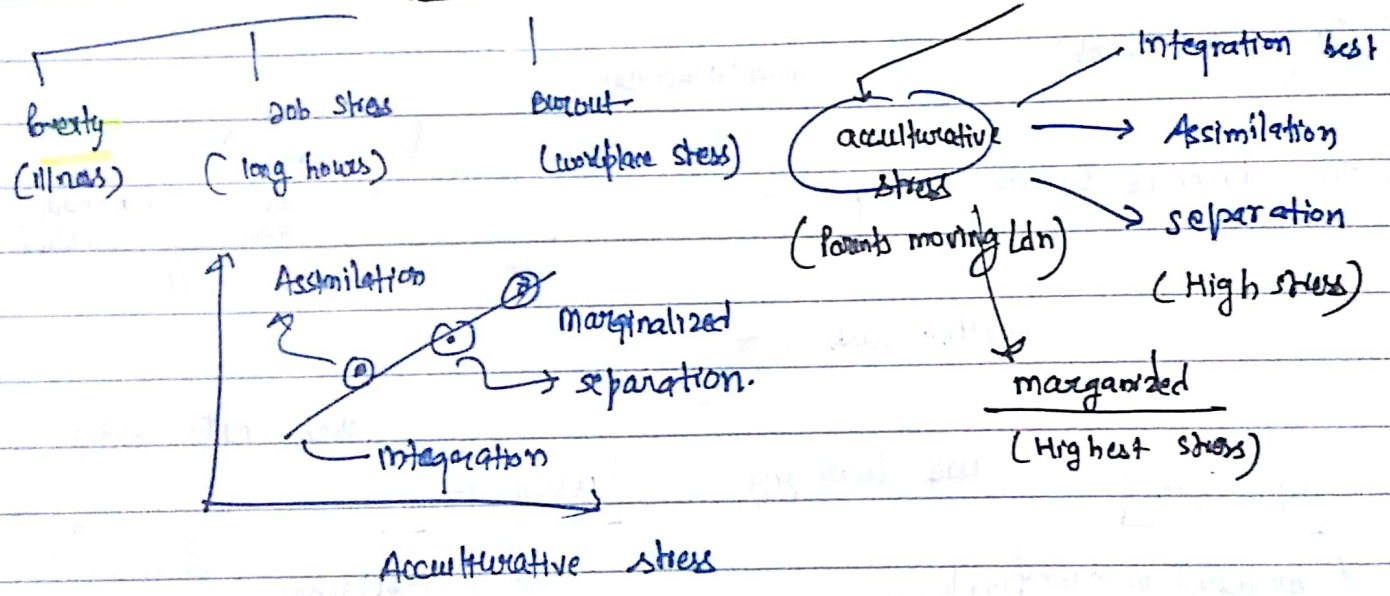 Poverty
(illness)
Job stress
( long hours)
Burout
(workplace stress)
acculturative
stress
( Parents moving Ldn)
Integration best
Assimilation
separation
( High stress)
marganized
( Highest stress)
Assimilation
marginalized
separation.
integration
Acculturative stress